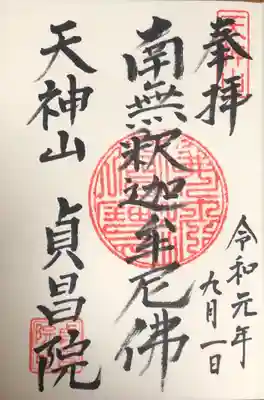 奉拝
令和元年
九月一日
南無釈迦牟尼佛
天神山 貞昌院